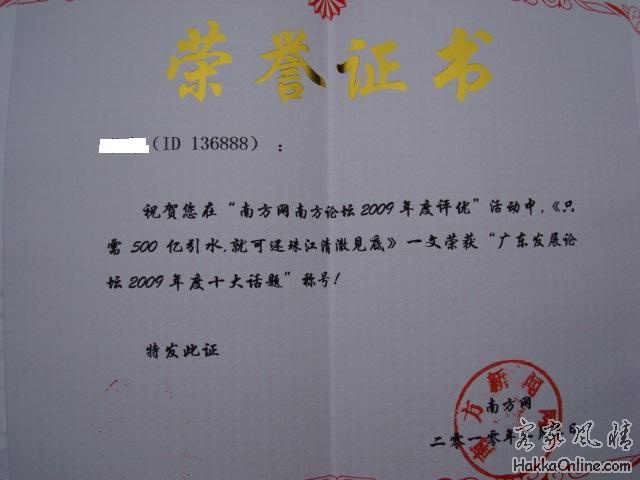 荣誉证书
(ID 136888)：
祝贺您在“南方网南方论坛2009年度评优”活动中，《只
需500亿引水，就可还珠江清澈见底》一文荣获“广东发展论
坛2009年度十大话题”称号！
特发此证
南方新闻网
南方网
二零一零年
客家风情
HakkaOnline.com